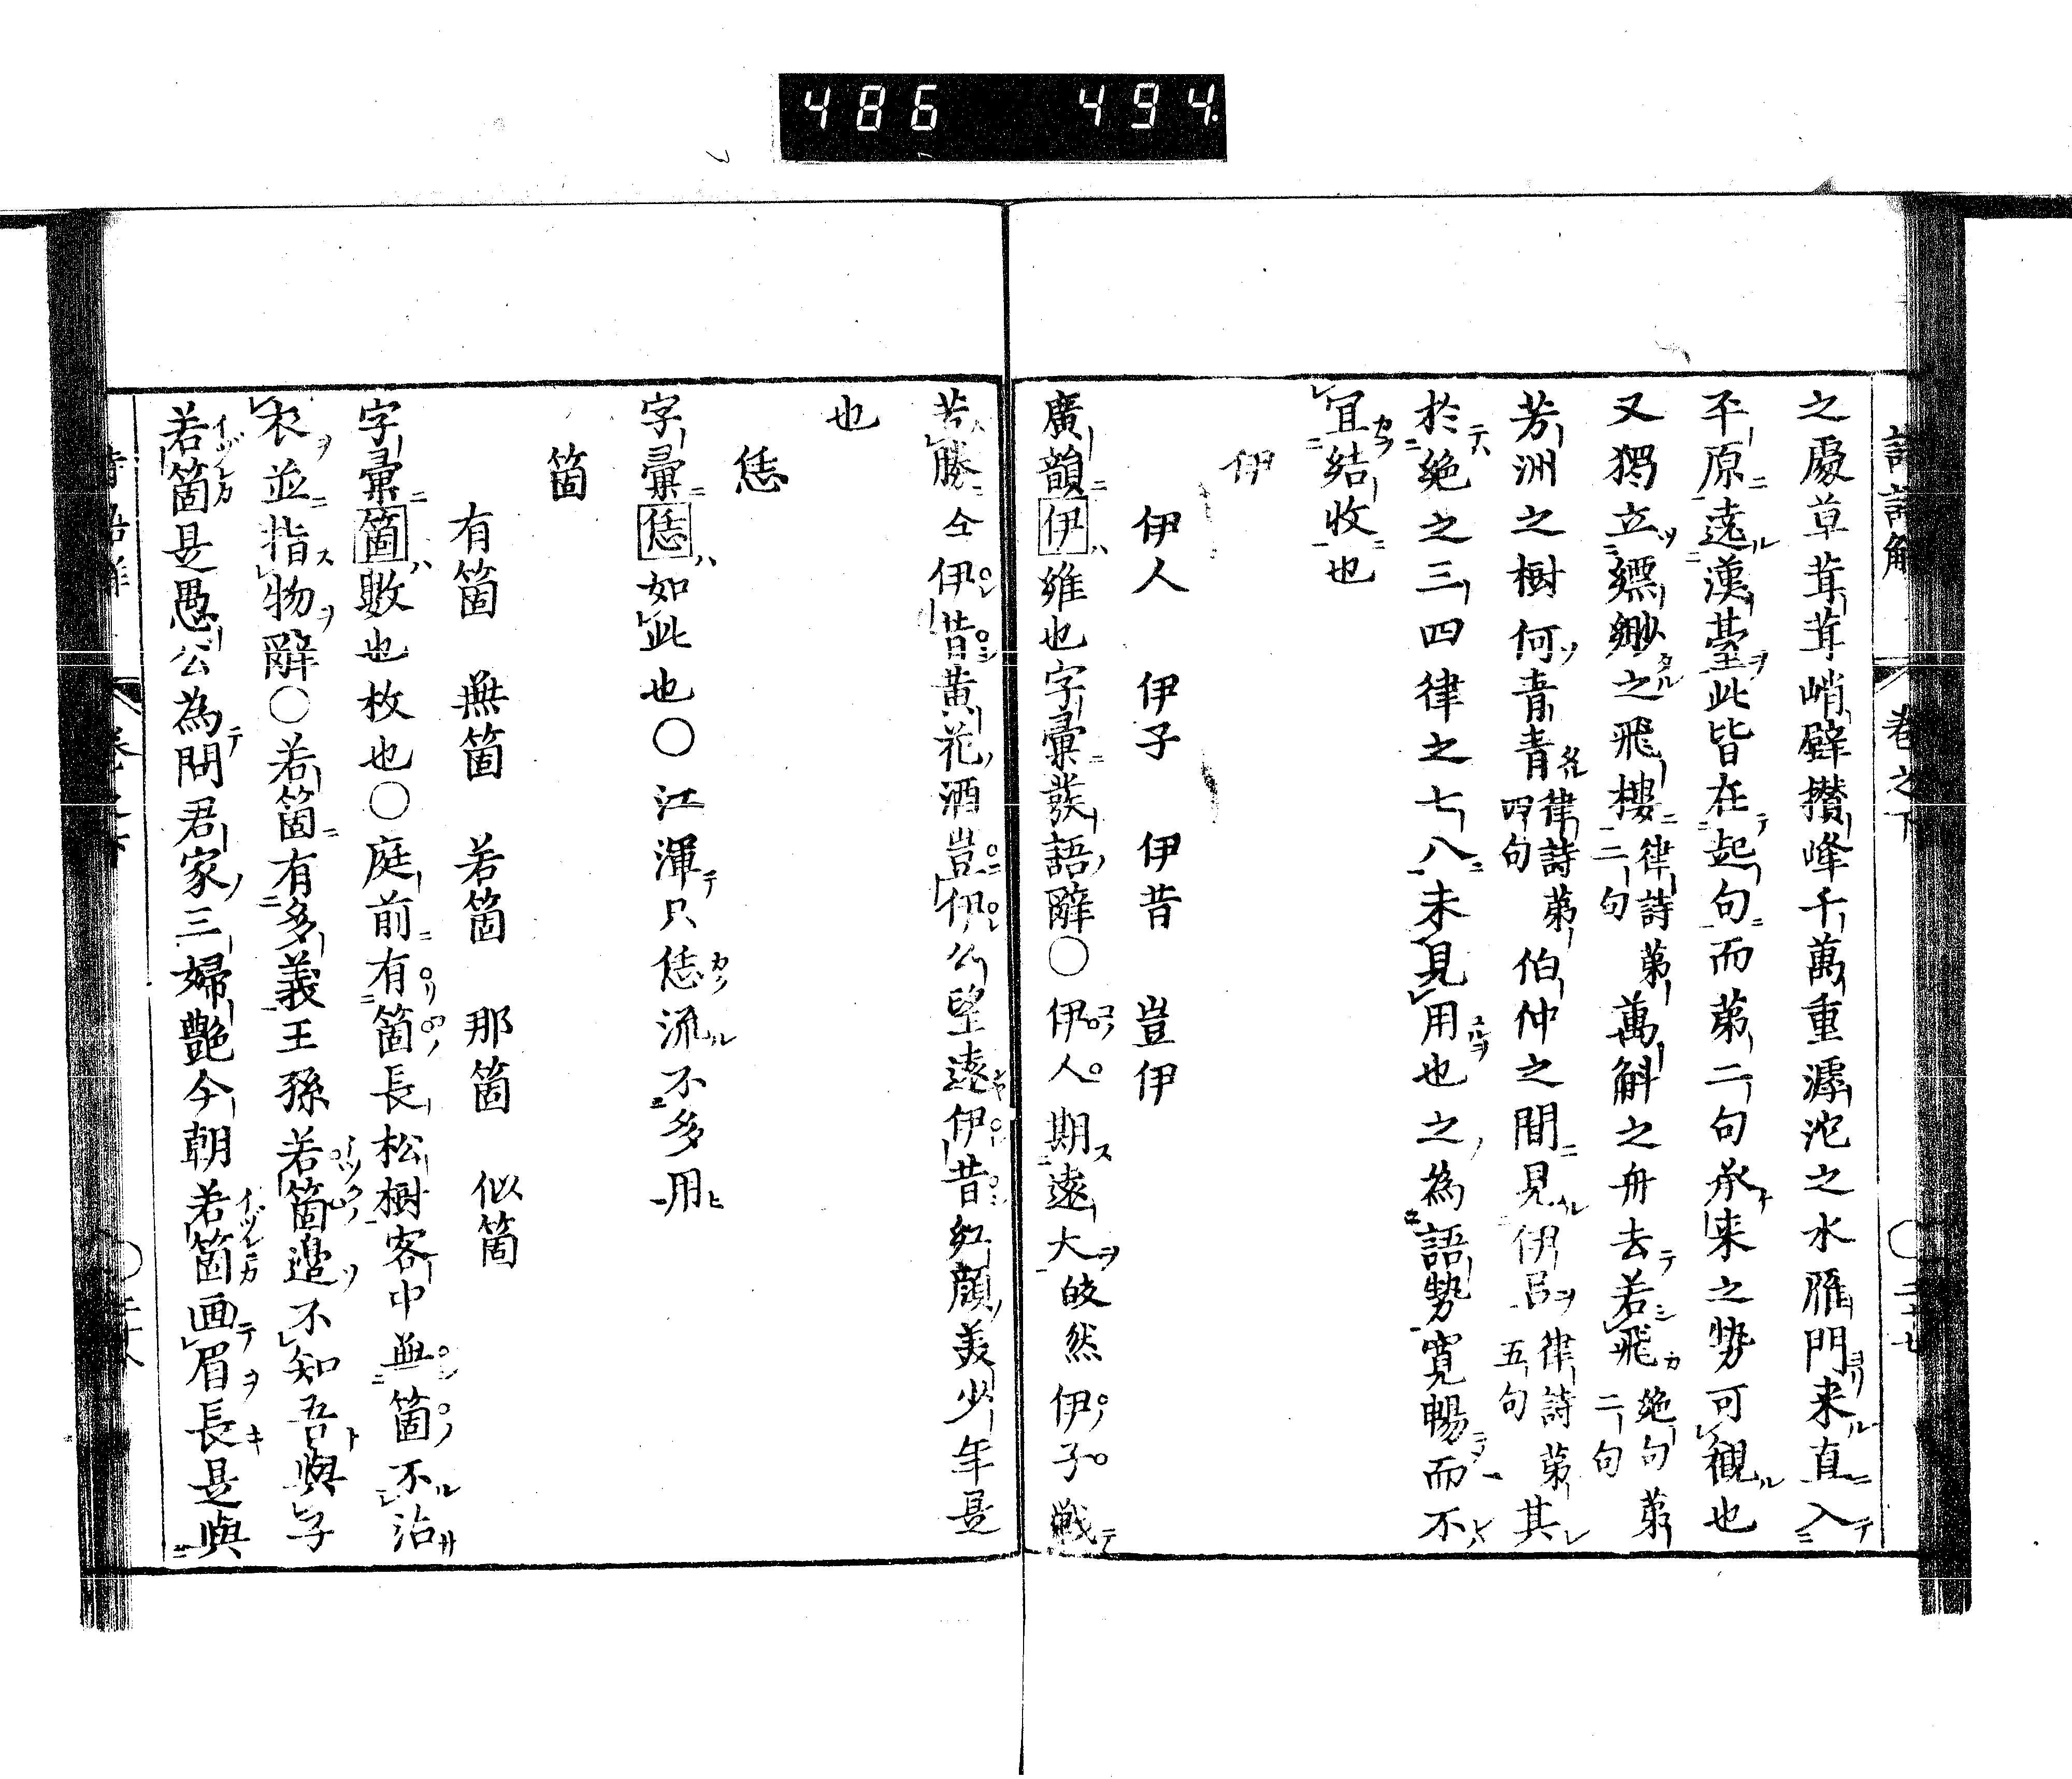 486 494
詩語解 卷之下 二十七
之處草茸茸峭壁攅峰千萬重滹沱之水雁門来直入
平原遶漢臺此皆在起句而第二句承来之勢可觀也
又獨立縹緲之飛樓律詩第二句萬斛之舟去若飛絶句第二句
芳洲之樹何青青律詩第四句伯仲之間見伊呂律詩第五句其
於絶之三四律之七八未見用也之為語勢寛暢而不
宜結收也
伊
伊人 伊子 伊昔 豈伊
廣韻伊維也字彙發語辭〇伊人期遠大皎然伊子戦
苦勝仝伊昔黄花酒豈伊公望遠伊昔紅顔美少年是
也
恁
字彙恁如此也〇江渾只恁流不多用
箇
有箇 無箇 若箇 那箇 似箇
字彙箇數也枚也〇庭前有箇長松樹客中無箇不沾
衣並指物辭〇若箇有多義王孫若箇邉不知吾與子
若箇是愚公為問君家三婦艶今朝若箇画眉長是與